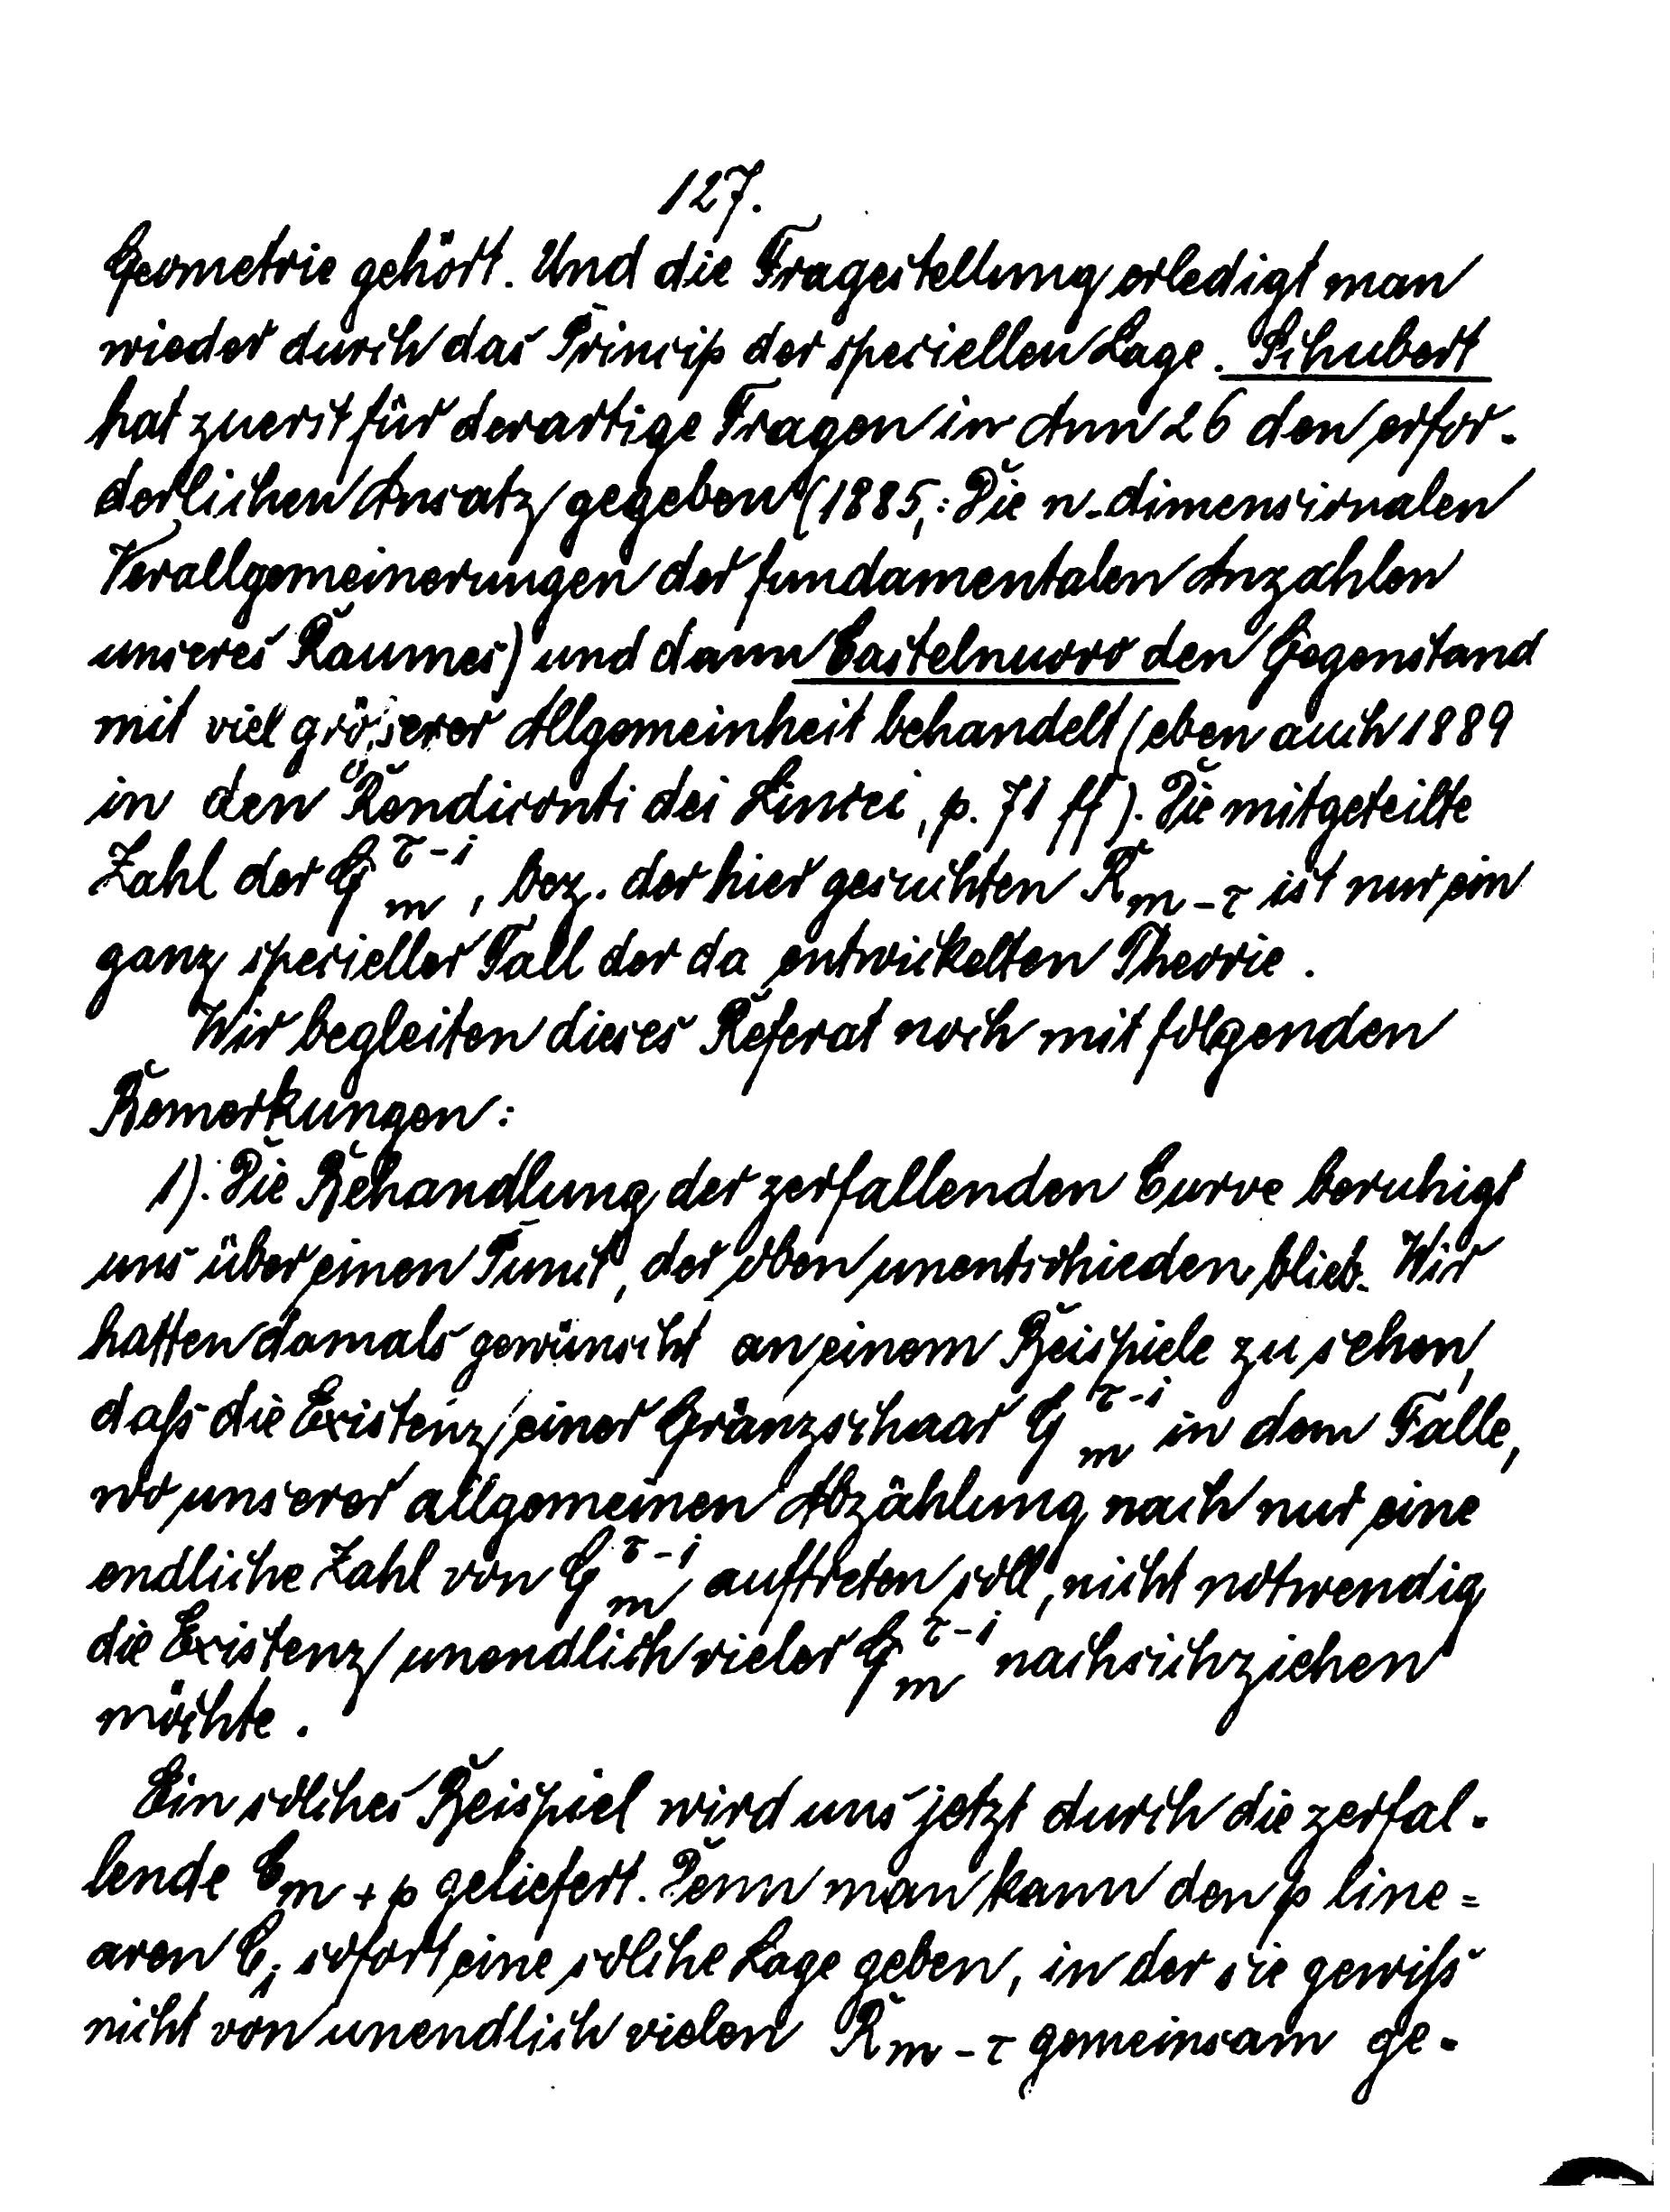 127.
Geometrie gehört. Und die Fragestellung erledigt man
wieder durch das Princip der speciellen Lage. Schubert
hat zuerst für derartige Fragen in Ann 26 den erfor-
derlichen Ansatz gegeben (1885,: Die n-dimensionalen
Verallgemeinerungen der fundamentalen Anzahlen
unseres Raumes) und dann Castelnuovo den Gegenstand
mit viel grösserer Allgemeinheit behandelt (eben auch 1889
in den Rendiconti dei Lincei, p. 71 ff). Die mitgeteilte
Zahl der G_m^{τ-i}, bez. der hier gesuchten R_{m-τ} ist nur ein
ganz specieller Fall der da entwickelten Theorie.
Wir begleiten dieses Referat noch mit folgenden
Bemerkungen:
1). Die Behandlung der zerfallenden Curve beruhigt
uns über einen Punct, der oben unentschieden blieb. Wir
hatten damals gewünscht an einem Beispiele zu sehen,
daſs die Existenz einer Gränzschaar G_m^{τ-i} in dem Falle,
wo unserer allgemeinen Abzählung nach nur eine
endliche Zahl von G_m^{τ-i} auftreten soll, nicht notwendig
die Existenz unendlich vieler G_m^{τ-i} nachsichziehen
möchte.
Ein solches Beispiel wird uns jetzt durch die zerfal-
lende C_{m+p} geliefert. Denn man kann den p line=
aren C_i sofort eine solche Lage geben, in der sie gewiſs
nicht von unendlich vielen R_{m-τ} gemeinsam ge-